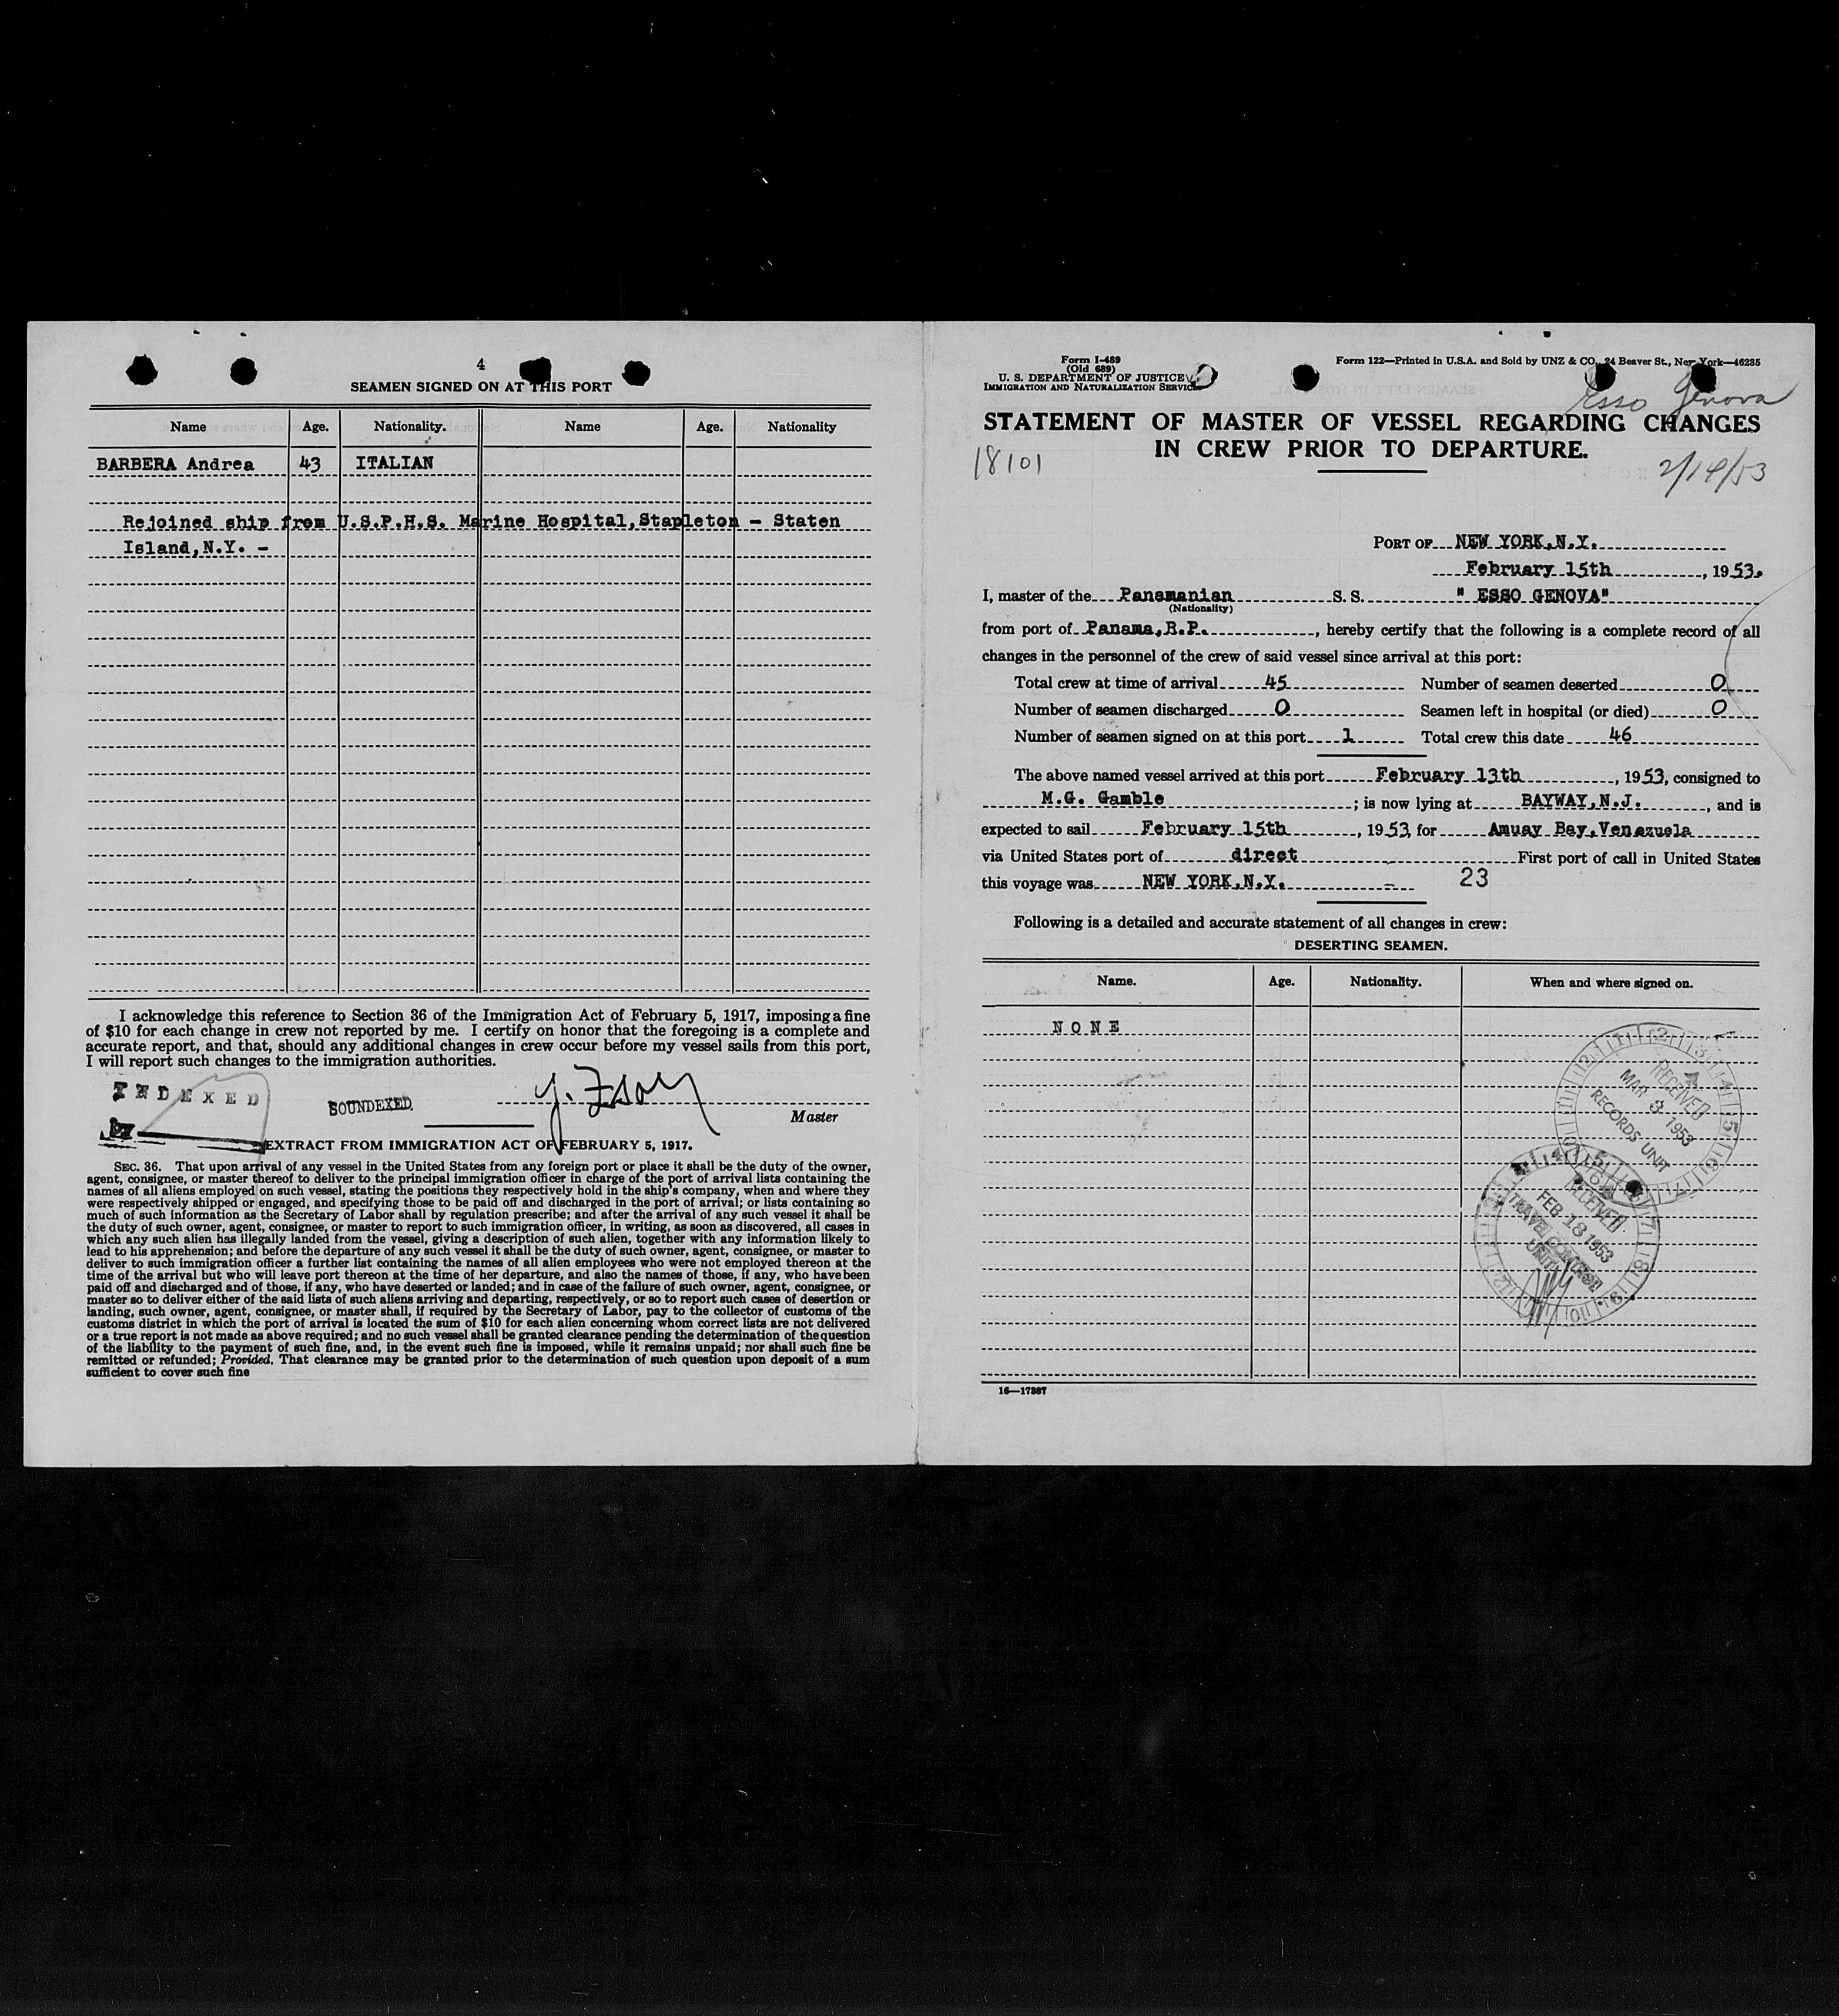 4
SEAMEN SIGNED ON AT THIS PORT
Name Age. Nationality. Name Age. Nationality
BARBERA Andrea 43 ITALIAN
Rejoined ship from U.S.P.H.S. Marine Hospital,Stapleton - Staten
Island,N.Y. -
I acknowledge this reference to Section 36 of the Immigration Act of February 5, 1917, imposing a fine
of $10 for each change in crew not reported by me. I certify on honor that the foregoing is a complete and
accurate report, and that, should any additional changes in crew occur before my vessel sails from this port,
I will report such changes to the immigration authorities.
INDEXED
SOUNDEXED
Master
EXTRACT FROM IMMIGRATION ACT OF FEBRUARY 5, 1917.
SEC. 36. That upon arrival of any vessel in the United States from any foreign port or place it shall be the duty of the owner,
agent, consignee, or master thereof to deliver to the principal immigration officer in charge of the port of arrival lists containing the
names of all aliens employed on such vessel, stating the positions they respectively hold in the ship's company, when and where they
were respectively shipped or engaged, and specifying those to be paid off and discharged in the port of arrival; or lists containing so
much of such information as the Secretary of Labor shall by regulation prescribe; and after the arrival of any such vessel it shall be
the duty of such owner, agent, consignee, or master to report to such immigration officer, in writing, as soon as discovered, all cases in
which any such alien has illegally landed from the vessel, giving a description of such alien, together with any information likely to
lead to his apprehension; and before the departure of any such vessel it shall be the duty of such owner, agent, consignee, or master to
deliver to such immigration officer a further list containing the names of all alien employees who were not employed thereon at the
time of the arrival but who will leave port thereon at the time of her departure, and also the names of those, if any, who have been
paid off and discharged and of those, if any, who have deserted or landed; and in case of the failure of such owner, agent, consignee, or
master so to deliver either of the said lists of such aliens arriving and departing, respectively, or so to report such cases of desertion or
landing, such owner, agent, consignee, or master shall, if required by the Secretary of Labor, pay to the collector of customs of the
customs district in which the port of arrival is located the sum of $10 for each alien concerning whom correct lists are not delivered
or a true report is not made as above required; and no such vessel shall be granted clearance pending the determination of the question
of the liability to the payment of such fine, and, in the event such fine is imposed, while it remains unpaid; nor shall such fine be
remitted or refunded; Provided, That clearance may be granted prior to the determination of such question upon deposit of a sum
sufficient to cover such fine
Form I-489
(Old 689)
U. S. DEPARTMENT OF JUSTICE
IMMIGRATION AND NATURALIZATION SERVICE
Form 122—Printed in U.S.A. and Sold by UNZ & CO., 24 Beaver St., New York—46235
Esso Genova
STATEMENT OF MASTER OF VESSEL REGARDING CHANGES
IN CREW PRIOR TO DEPARTURE.
18101
2/14/53
PORT OF NEW YORK,N.Y.
February 15th, 1953.
I, master of the Panamanian S. S. " ESSO GENOVA"
(Nationality)
from port of Panama,R.P., hereby certify that the following is a complete record of all
changes in the personnel of the crew of said vessel since arrival at this port:
Total crew at time of arrival 45 Number of seamen deserted 0
Number of seamen discharged 0 Seamen left in hospital (or died) 0
Number of seamen signed on at this port 1 Total crew this date 46
The above named vessel arrived at this port February 13th, 1953, consigned to
M.G. Gamble; is now lying at BAYWAY,N.J., and is
expected to sail February 15th, 1953, for Amuay Bay,Venezuela
via United States port of direct First port of call in United States
this voyage was NEW YORK,N.Y. - 23
Following is a detailed and accurate statement of all changes in crew:
DESERTING SEAMEN.
Name. Age. Nationality. When and where signed on.
NONE
RECEIVED
MAR 3 1953
RECORDS UNIT
RECEIVED
FEB 18 1953
TRAVEL CONTROL
UNIT
16—17887